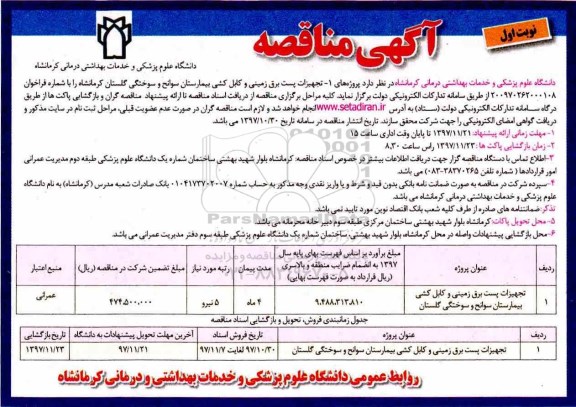 نوبت اول
آگهی مناقصه
دانشگاه علوم پزشکی و خدمات بهداشتی درمانی کرمانشاه
دانشگاه علوم پزشکی و خدمات بهداشتی درمانی کرمانشاه در نظر دارد پروژه‌های ۱- تجهیزات پست برق زمینی و کابل کشی بیمارستان سوانح و سوختگی گلستان کرمانشاه را با شماره فراخوان
۲۰۰۹۷۰۲۶۲۰۰۰۱۰۸ از طریق سامانه تدارکات الکترونیکی دولت برگزار نماید. کلیه مراحل برگزاری مناقصه از دریافت اسناد مناقصه تا ارائه پیشنهاد مناقصه گران و بازگشایی پاکت ها از طریق
درگاه سامانه تدارکات الکترونیکی دولت (ستاد) به آدرس www.setadiran.ir انجام خواهد شد و لازم است مناقصه گران در صورت عدم عضویت قبلی، مراحل ثبت نام در سایت مذکور و
دریافت گواهی امضای الکترونیکی را جهت شرکت محقق سازند. تاریخ انتشار مناقصه در سامانه تاریخ ۱۳۹۷/۱۰/۳۰ می باشد.
۱- مهلت زمانی ارائه پیشنهاد: ۱۳۹۷/۱۱/۲۱ تا پایان وقت اداری ساعت ۱۵
۲- زمان بازگشایی پاکت ها: ۱۳۹۷/۱۱/۲۳ راس ساعت ۸.۳۰
۳-اطلاع تماس با دستگاه مناقصه گزار جهت دریافت اطلاعات بیشتر در خصوص اسناد مناقصه: کرمانشاه بلوار شهید بهشتی ساختمان شماره یک دانشگاه علوم پزشکی طبقه دوم مدیریت عمرانی
امور قراردادها ( شماره تلفن ۳۸۳۷۰۲۶۵-۰۸۳) می باشد.
۴-سپرده شرکت در مناقصه به صورت ضمانت نامه بانکی بدون قید و شرط و یا واریز نقدی وجه مذکور به حساب شماره ۰۱۰۴۱۷۳۷۰۲۰۰۷ بانک صادرات شعبه مدرس (کرمانشاه) به نام دانشگاه
علوم پزشکی و خدمات بهداشتی درمانی کرمانشاه می باشد.
تذکر: ضمانتنامه های صادره از طرف کلیه شعب بانک اقتصاد نوین مورد تایید نمی باشد.
۵- محل تحویل پاکات: کرمانشاه بلوار شهید بهشتی ساختمان مرکزی طبقه سوم دبیرخانه محرمانه می باشد.
۶-محل بازگشایی پیشنهادات واصله در محل کرمانشاه، بلوار شهید بهشتی، ساختمان شماره یک دانشگاه علوم پزشکی طبقه سوم دفتر مدیریت عمرانی می باشد.
ردیف عنوان پروژه مبلغ برآورد بر اساس فهرست بهای پایه سال ۱۳۹۷ به انضمام ضرایب منطقه و بالاسری (ریال قرارداد به صورت فهرست بهایی) مدت پیمان رتبه مورد نیاز مبلغ تضمین شرکت در مناقصه (ریال) منبع اعتبار
۱ تجهیزات پست برق زمینی و کابل کشی بیمارستان سوانح و سوختگی گلستان ۹.۴۸۸.۳۱۳.۸۱۰ ۴ ماه ۵ نیرو ۴۷۴.۵۰۰.۰۰۰ عمرانی
جدول زمانبندی فروش، تحویل و بازگشایی اسناد مناقصه
ردیف عنوان پروژه تاریخ فروش اسناد آخرین مهلت تحویل پیشنهادات به دانشگاه تاریخ بازگشایی
۱ تجهیزات پست برق زمینی و کابل کشی بیمارستان سوانح و سوختگی گلستان ۹۷/۱۰/۳۰ لغایت ۹۷/۱۱/۷ ۹۷/۱۱/۲۱ ۱۳۹۷/۱۱/۲۳
روابط عمومی دانشگاه علوم پزشکی و خدمات بهداشتی و درمانی کرمانشاه